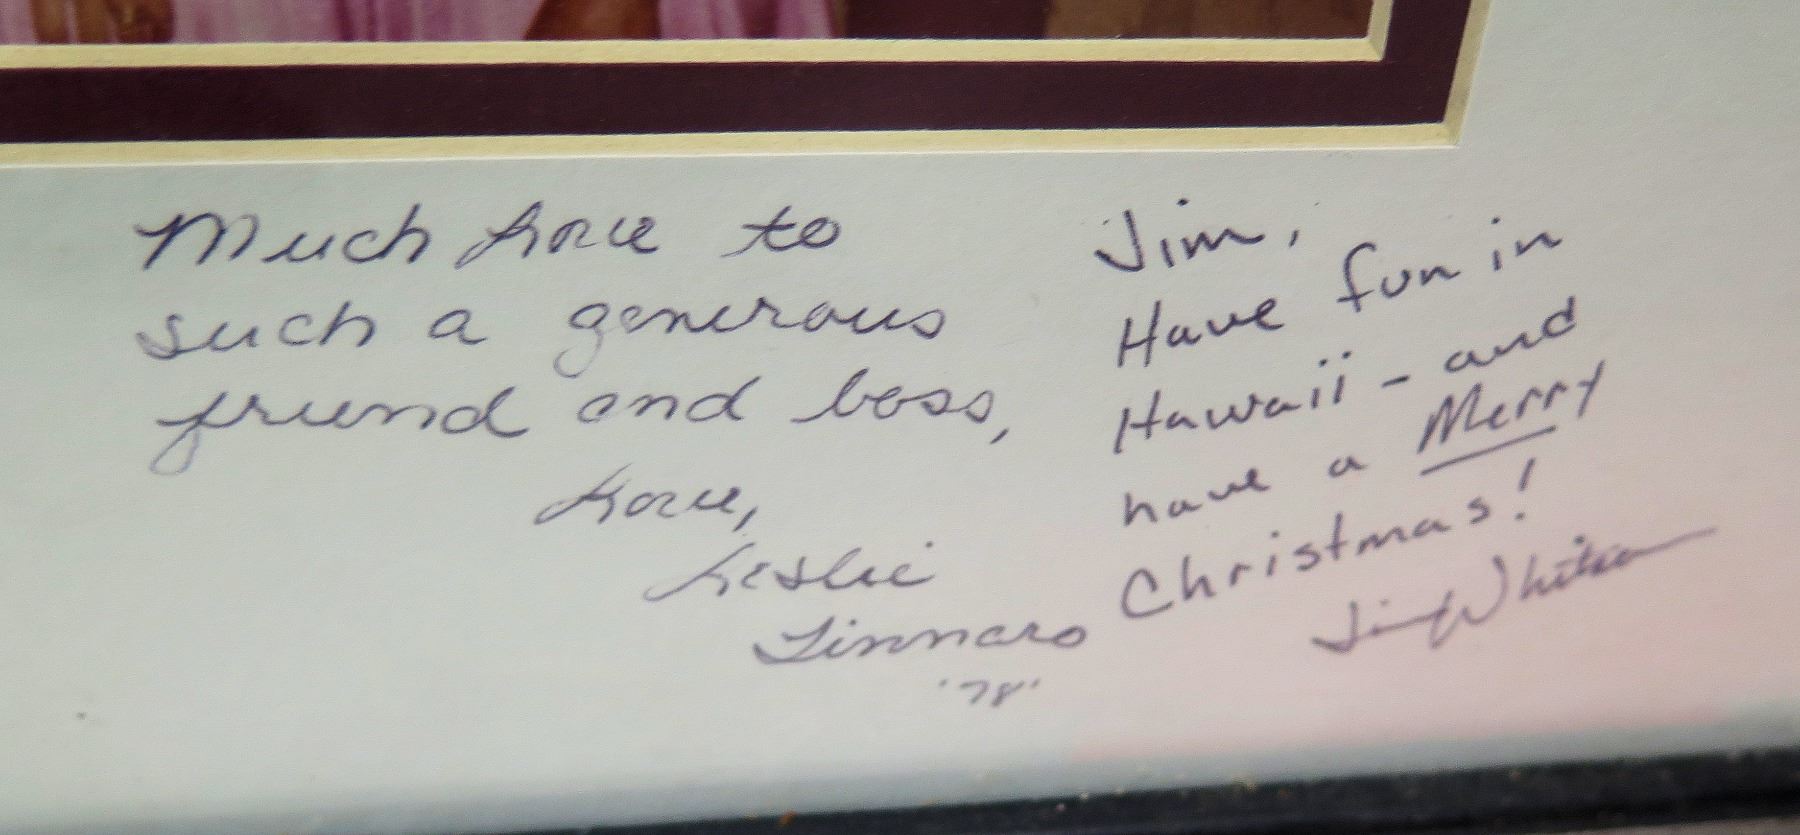 Much Love to
such a generous
friend and boss,
Love,
Leslie
Linnaro
'78'
Jim,
Have fun in
Hawaii - and
have a Merry
Christmas!
Jim